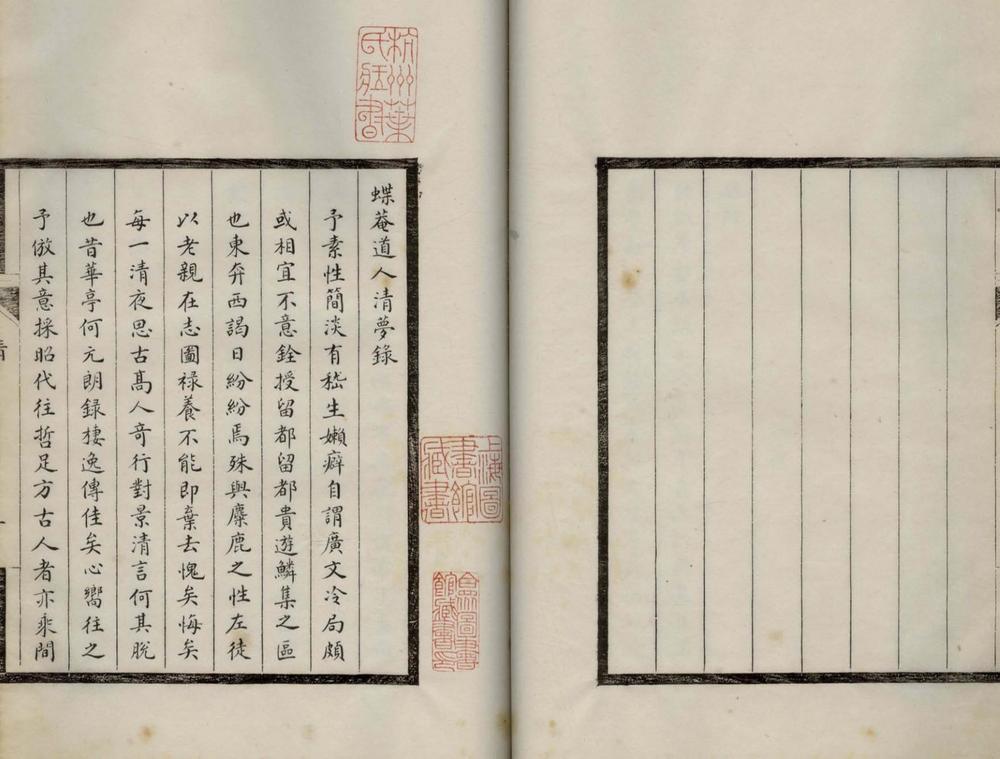 蝶菴道人清夢錄
予素性簡淡有嵇生嬾癖自謂廣文冷局頗
或相宜不意銓授留都留都貴遊鱗集之區
也東奔西謁日紛紛焉殊與麋鹿之性左徒
以老親在志圖祿養不能即棄去愧矣悔矣
每一清夜思古髙人竒行對景清言何其脫
也昔華亭何元朗錄棲逸傳佳矣心嚮往之
予倣其意採昭代往哲足方古人者亦乘間
杭州葉氏藏書
上海圖書館藏書
合眾圖書館藏書印
清